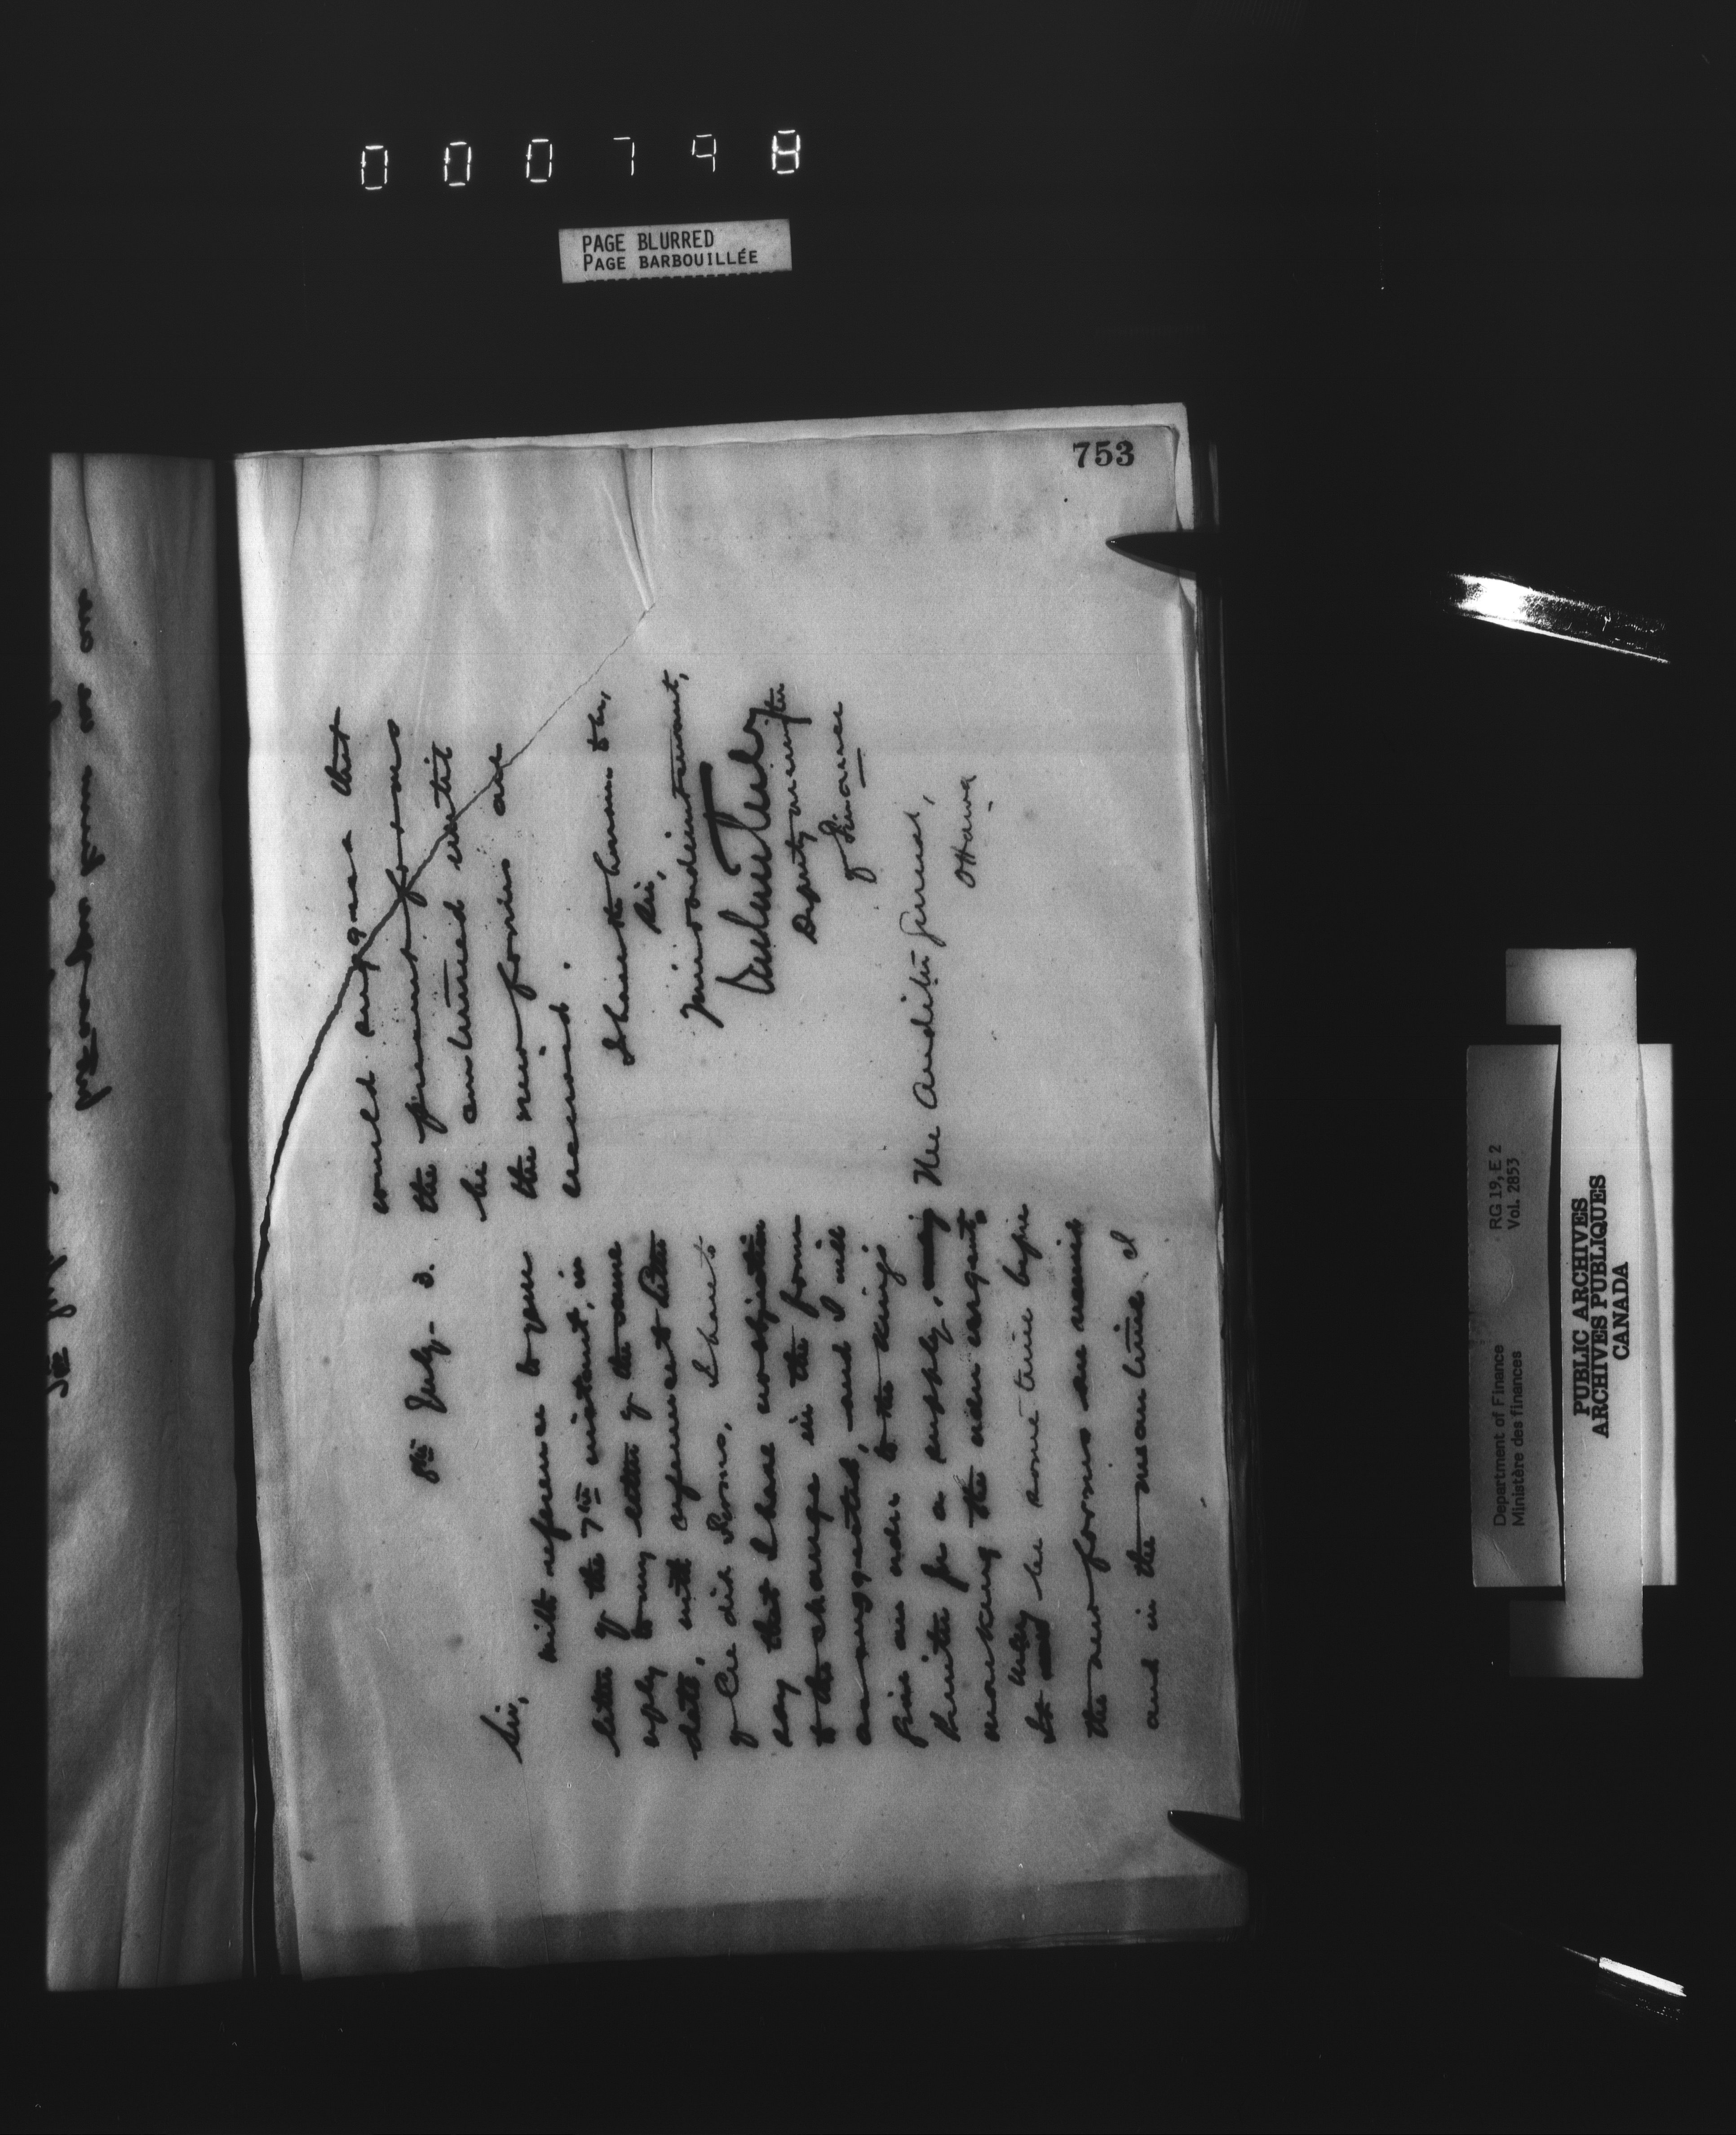 000798
PAGE BLURRED
PAGE BARBOUILLÉE
753
8th July - 3.
Sir,
With reference to your
letter of the 7th instant, in
reply to my letter of the same
date, with reference to
of Cie dis Forms, I have to
say that I have no objection
to the change in the form
as suggested, and I will
give an order to the King's
Printer for a supply,
marking the order urgent.
It may be some time before
the new forms are received
and in the meantime I
would suggest that
the present forms
be continued until
the new forms are
received.
I have the honour to be,
Sir,
Your obedient servant,
Deputy Minister
of Finance
The Auditor General,
Ottawa
Department of Finance
Ministère des finances
RG 19, E 2
Vol. 2853
PUBLIC ARCHIVES
ARCHIVES PUBLIQUES
CANADA